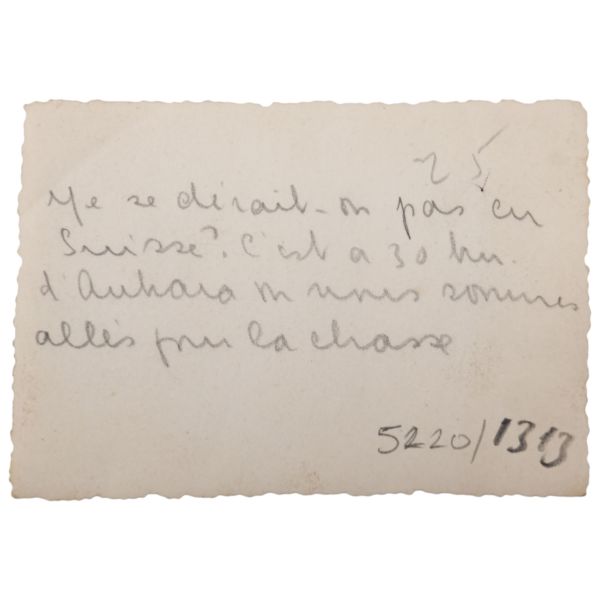 25
Ne se dirait-on pas en
Suisse?. C'est a 30 km.
d'Ankara où nous sommes
allés pour la chasse
5220/1313